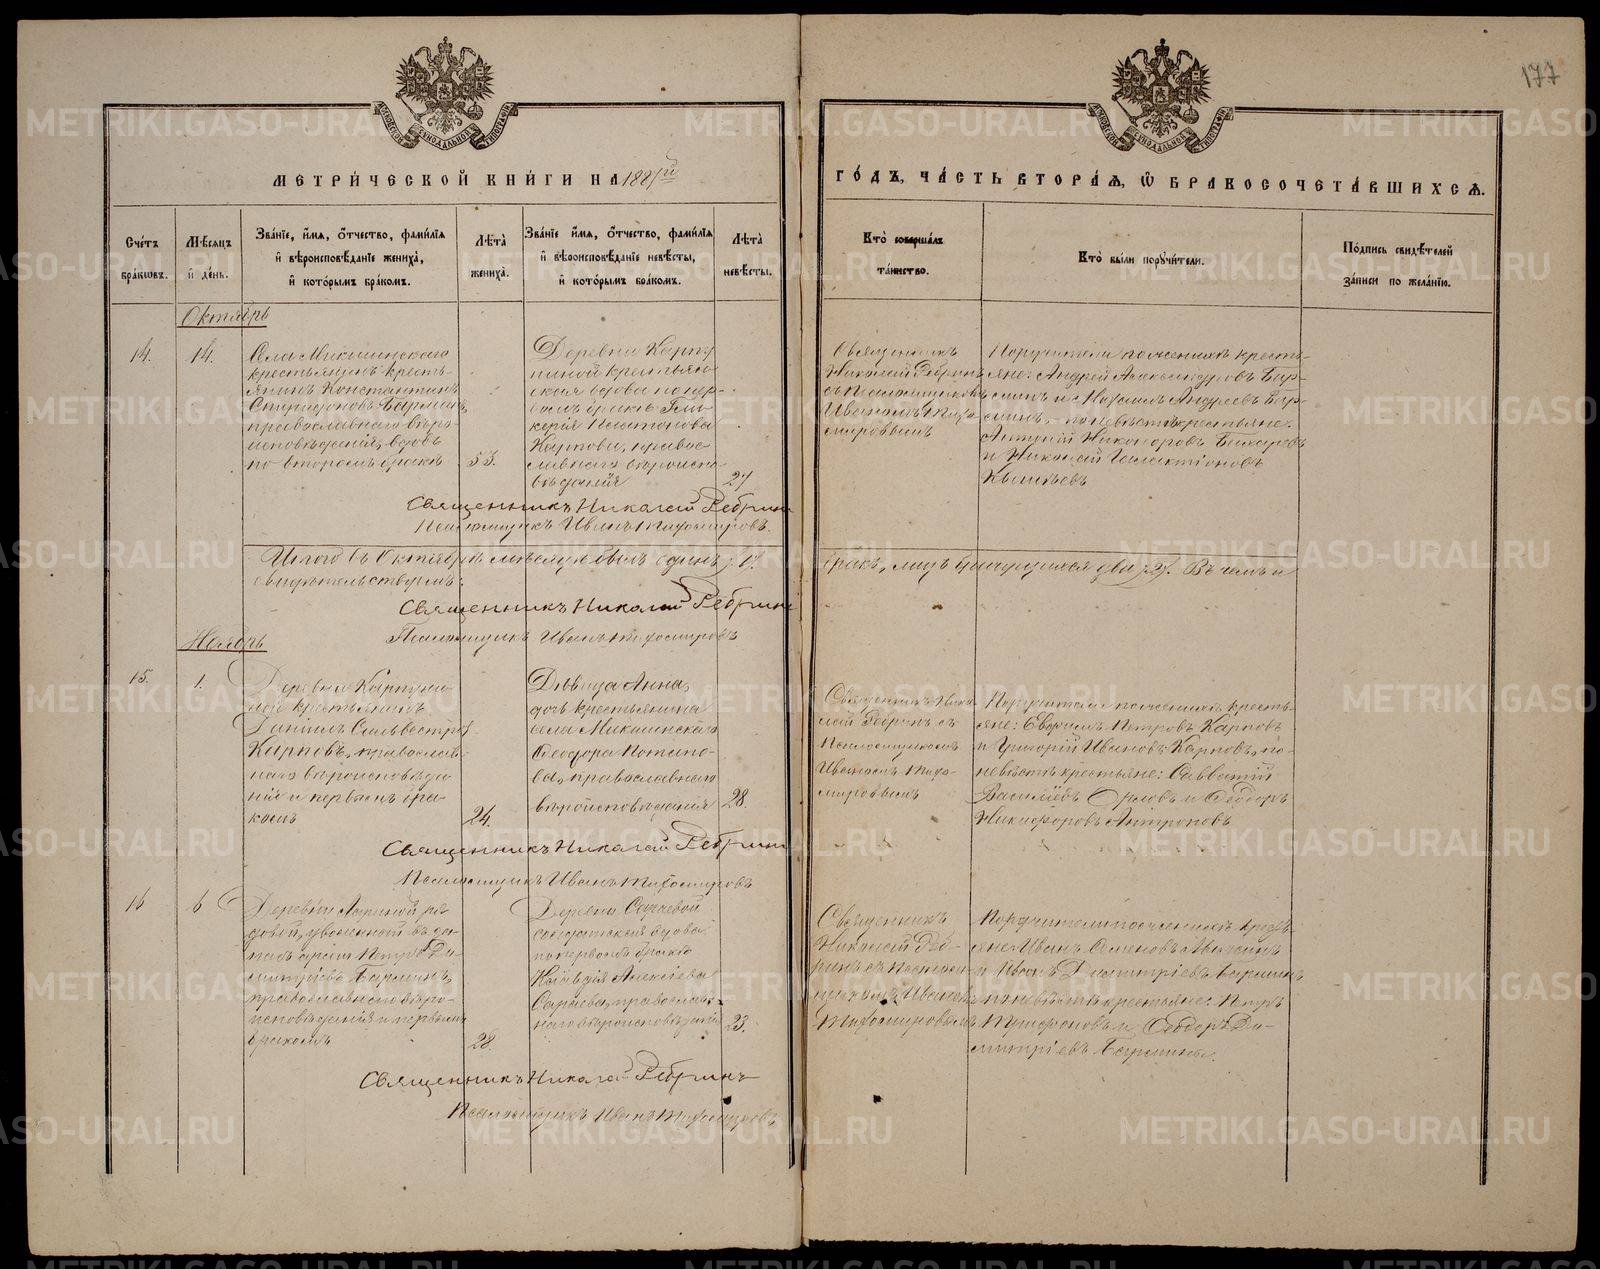 177
МОСКОВСКОЙ СѴНОДАЛЬНОЙ ТИПОГРАФІИ
МОСКОВСКОЙ СѴНОДАЛЬНОЙ ТИПОГРАФІИ
МЕТРИ́ЧЕСКОЙ КНИ́ГИ НА 1881й
ГО́ДЪ, ЧА́СТЬ ВТОРА́Ѧ, Ѡ҆ БРАКОСОЧЕТА́ВШИХСѦ.
Сче́тъ бра́кѡвъ.
Мѣ́сѧцъ и҆ де́нь.
Зва́нїе, и҆́мѧ, ѻ҆́тчество, фами́лїѧ и҆ вѣроисповѣ́данїе жениха̀, и҆ кото́рымъ бра́комъ.
Лѣта̀ жениха̀.
Зва́нїе и҆́мѧ, ѻ҆́тчество, фами́лїѧ и҆ вѣроисповѣ́данїе невѣ́сты, и҆ кото́рымъ бра́комъ.
Лѣта̀ невѣ́сты.
Кто̀ соверша́лъ та́инство.
Кто̀ бы́ли порꙋчи́тели.
По́дпись свидѣ́телей за́писи по жела́нїю.
Октябрь
14.
14.
Села Микшинскаго
крестьянинъ кресть-
янинъ Константинъ
Спиридоновъ
православнаго вѣро-
исповѣданія, вдовъ
по второмъ бракѣ
53.
Деревни Карпу
ниной крестьян-
ская вдова по пер-
вомъ бракѣ Гли-
керія
Карпова, правос-
славнаго вѣроиспо-
вѣданія
27
Священникъ
Николай Ребринъ
съ Псаломщикомъ
Иваномъ Тихо-
мировымъ
Поручители по женихѣ кресть-
яне: Андрей Александровъ Бар-
минъ и Андреевъ Бар-
минъ, по невѣстѣ крестьяне:
Антоній Никаноровъ
и Николай Галактіоновъ
Священникъ Николай Ребринъ
Псаломщикъ Иванъ Тихомировъ.
Итого въ Октябрѣ мѣсяцѣ былъ одинъ /1/
бракъ, лицъ брачущихся два /2/. Въ чемъ и
свидѣтельствуемъ:
Священникъ Николай Ребринъ
Псаломщикъ Иванъ Тихомировъ
Ноябрь
15.
1.
Деревни Карпуни-
ной крестьянинъ
Даніилъ Сильвестровъ
Карповъ, православ-
наго вѣроисповѣда-
нія и первымъ бра-
комъ
24.
Дѣвица Анна,
дочь крестьянина
села Микшинскаго
Ѳеодора Потапо-
ва, православнаго
вѣроисповѣданія
28.
Священникъ Нико-
лай Ребринъ съ
Псаломщикомъ
Иваномъ Тихо-
мировымъ
Поручители по женихѣ кресть-
яне: Евфимъ Петровъ Карповъ
и Григорій Ивановъ Карповъ, по
невѣстѣ крестьяне: Савватій
Василіевъ Орловъ и Ѳеодоръ
Никифоровъ Антроповъ
Священникъ Николай Ребринъ
Псаломщикъ Иванъ Тихомировъ
16
6
Деревни Лариной ря-
довой, уволенный въ за-
пасъ арміи Петръ Ди-
митріевъ Барминъ,
православнаго вѣро-
исповѣданія и первымъ
бракомъ
28.
Деревни Сараевой
солдатская вдова
по первомъ бракѣ
Алексіева
Сараева, православ-
наго вѣроисповѣданія
23.
Священникъ
Николай Реб-
ринъ съ Псалом-
щикомъ Иваномъ
Тихомировымъ
Поручители по женихѣ кресть-
яне: Иванъ Семеновъ
и Иванъ Димитріевъ Барминъ
по невѣстѣ крестьяне: Петръ
Трифоновъ и Ѳеодоръ Ди-
митріевъ Бармины.
Священникъ Николай Ребринъ
Псаломщикъ Иванъ Тихомировъ
METRIKI.GASO-URAL.RU